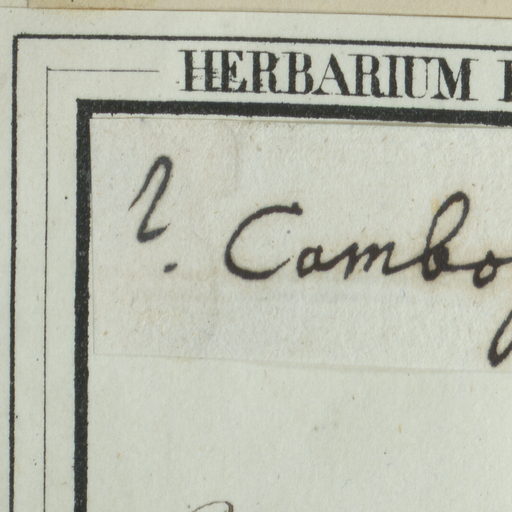 HERBARIUM
? Cambo